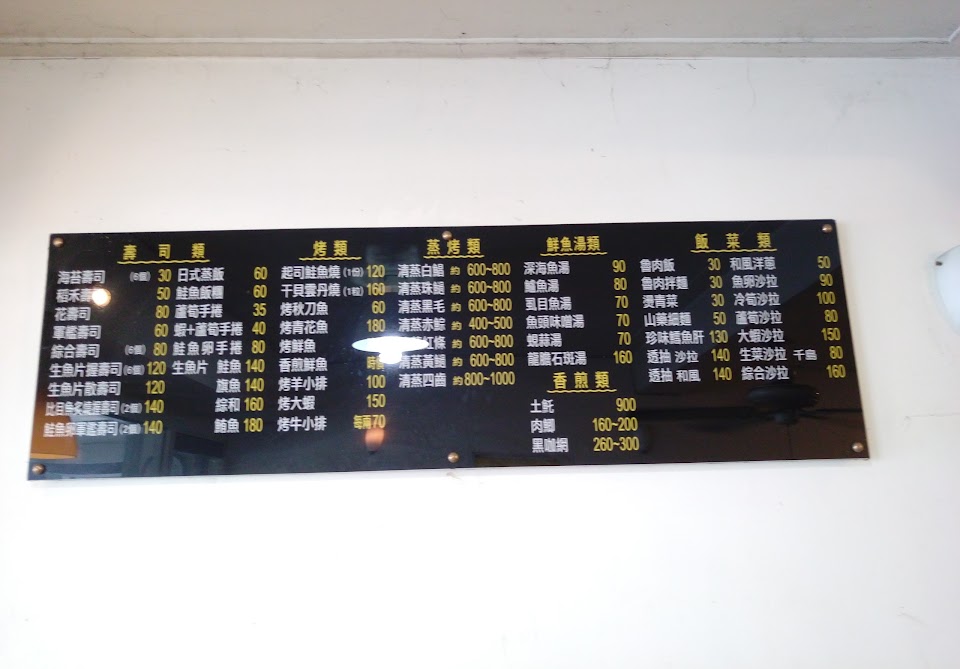 壽司類
海苔壽司 (6個) 30
稻禾壽 50
花壽司 80
軍艦壽司 60
綜合壽司 (6個) 80
生魚片握壽司 (6個) 120
生魚片散壽司 120
比目魚炙燒握壽司 (2個) 140
鮭魚卵軍艦壽司 (2個) 140
日式蒸飯 60
鮭魚飯糰 60
蘆筍手捲 35
蝦+蘆筍手捲 40
鮭魚卵手捲 80
生魚片 鮭魚 140
旗魚 140
綜和 160
鮪魚 180
烤類
起司鮭魚燒 (1份) 120
干貝雲丹燒 (1粒) 160
烤秋刀魚 60
烤青花魚 180
烤鮮魚
香煎鮮魚 時價
烤羊小排 100
烤大蝦 150
烤牛小排 每兩70
蒸烤類
清蒸白鯧 約 600~800
清蒸珠鯧 約 600~800
清蒸黑毛 約 600~800
清蒸赤鯮 約 400~500
紅條 約 600~800
清蒸黃鯧 約 600~800
清蒸四齒 約 800~1000
鮮魚湯類
深海魚湯 90
鱸魚湯 80
虱目魚湯 70
魚頭味噌湯 70
蜆蒜湯 70
龍膽石斑湯 160
香煎類
土魠 900
肉鯽 160~200
黑咖網 260~300
飯菜類
魯肉飯 30
魯肉拌麵 30
燙青菜 30
山藥細麵 50
珍味鱈魚肝 130
透抽 沙拉 140
透抽 和風 140
和風洋蔥 50
魚卵沙拉 90
冷筍沙拉 100
蘆筍沙拉 80
大蝦沙拉 150
生菜沙拉 千島 80
綜合沙拉 160